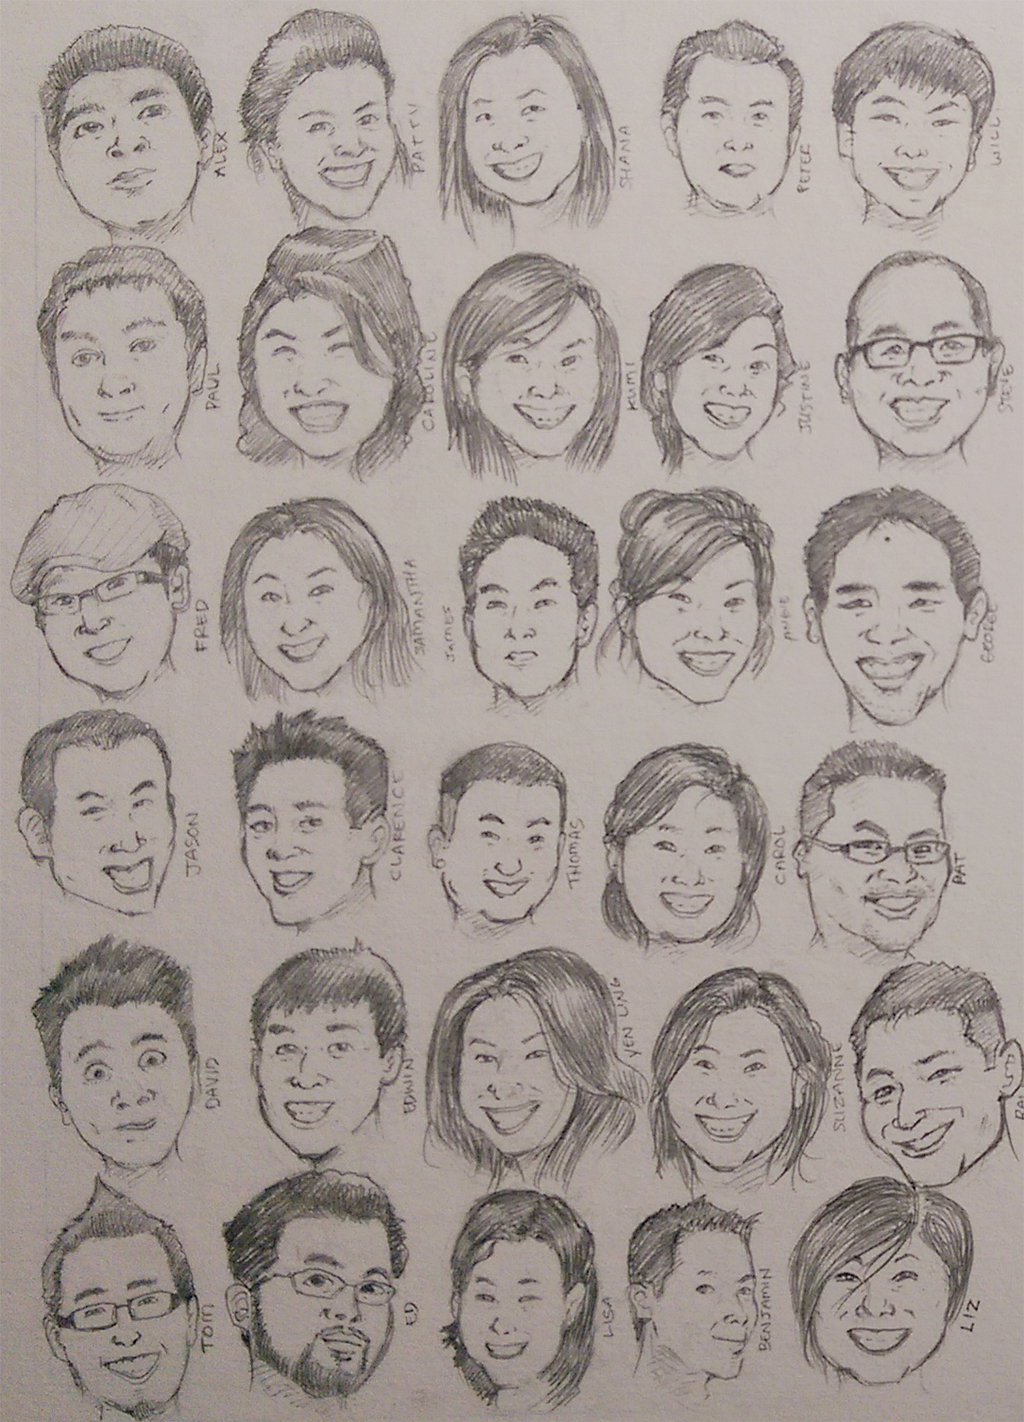 ALEX
PATTY
SHANA
PETER
WILL
PAUL
CAROLINE
KUMI
JUSTINE
STEVE
FRED
SAMANTHA
JAMES
ANGIE
GEORGE
JASON
CLARENCE
THOMAS
CAROL
PAT
DAVID
EDWIN
YEN LING
SUZANNE
TOM
ED
LISA
BENJAMIN
LIZ